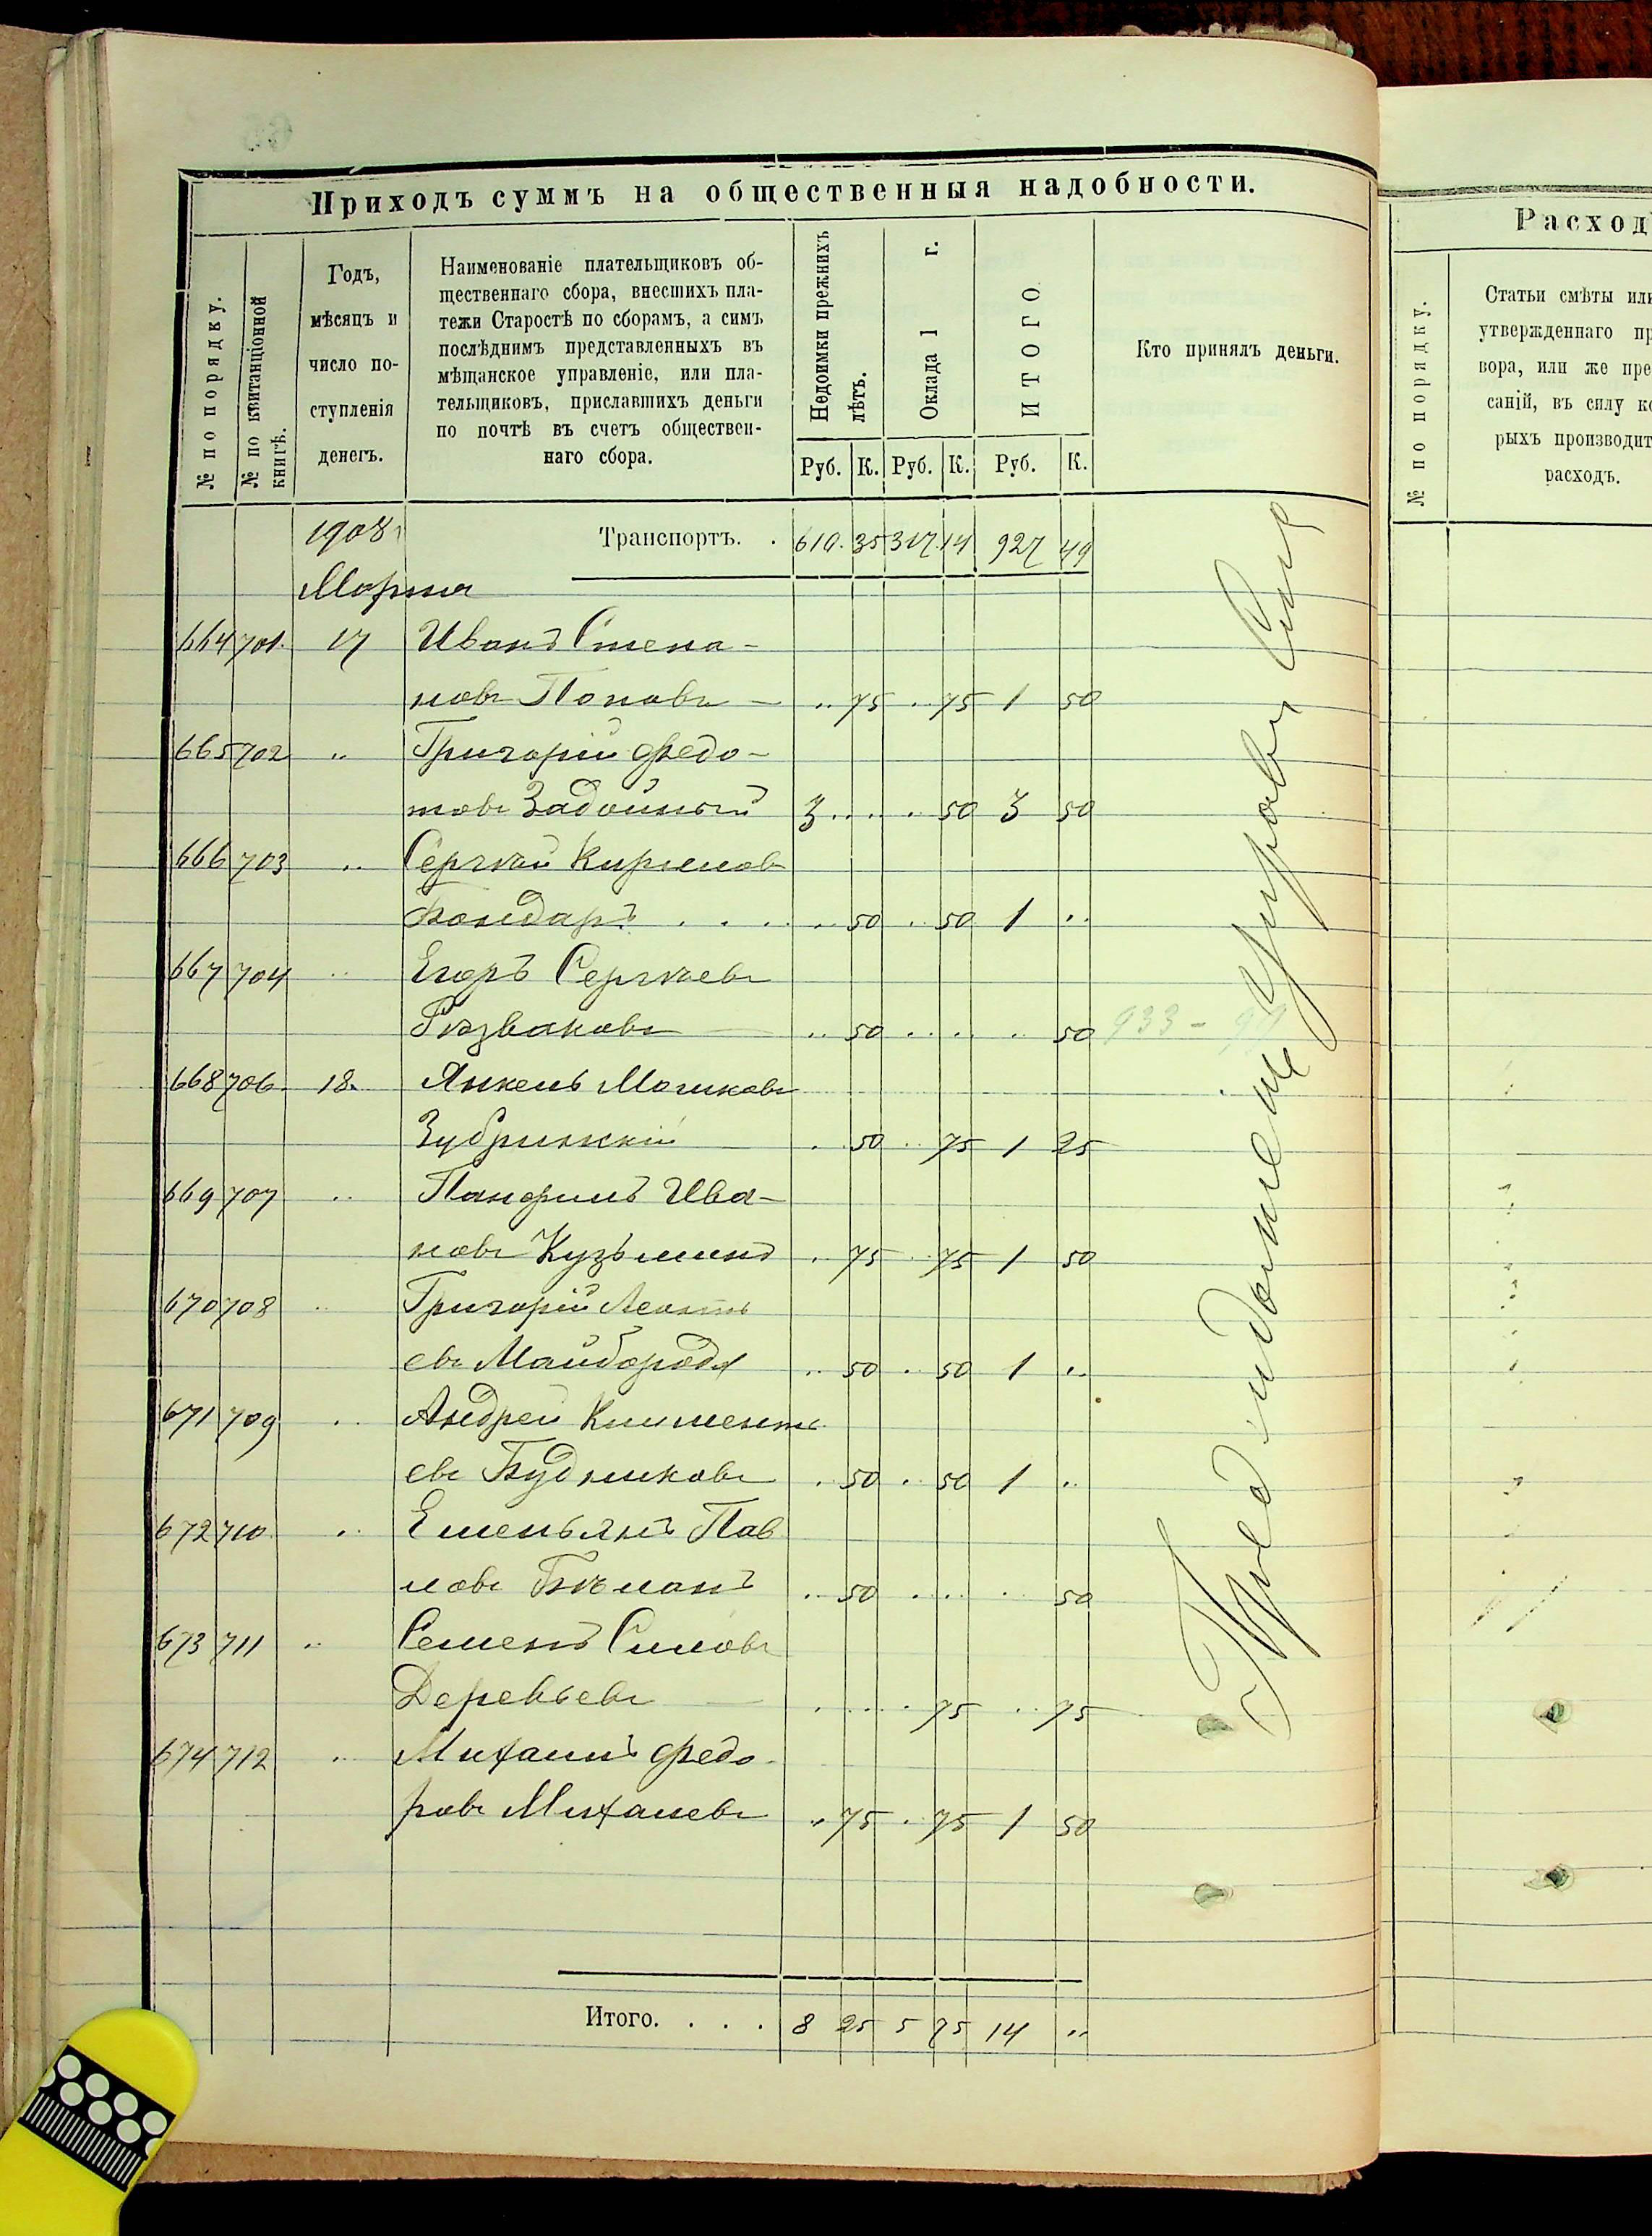 Приходъ суммъ на общественныя надобности.
№ по порядку.
№ по квитанціонной книгѣ.
Годъ,
мѣсяцъ и
число по-
ступленія
денегъ.
Наименованіе плательщиковъ об-
щественнаго сбора, внесшихъ пла-
тежи Старостѣ по сборамъ, а симъ
послѣднимъ представленныхъ въ
мѣщанское управленіе, или пла-
тельщиковъ, приславшихъ деньги
по почтѣ въ счетъ обществен-
наго сбора.
Недоимки прежнихъ лѣтъ.
Оклада 1 г.
ИТОГО
Кто принялъ деньги.
Руб. К. Руб. К. Руб. К.
1908 Транспортъ. . 610. 35 317 14 927 49
Марта
664 701. 17 Иванъ Степа-
новъ Поповъ — .. 75 .. 75 1 50
665 702 .. Григорій Федо-
товъ Задойный 3 .. .. 50 3 50
666 703 .. Сергѣй Кириловъ
Бондарь . . . .. 50 .. 50 1 ..
667 704 .. Егоръ Сергѣевъ
— .. 50 .. .. .. 50 933 -
668 706. 18. Янкель Мошковъ
Зубринскій — .. 50 .. 75 1 25
669 707 .. Панфилъ Ива-
новъ Кузьминъ .. 75 .. 75 1 50
670 708 .. Григорій Леонть
евъ Майборода .. 50 .. 50 1 ..
671 709 .. Андрей Климентъ
евъ Будниковъ .. 50 .. 50 1 ..
672 710 .. Емельянъ Пав
ловъ .. 50 .. .. .. 50
673 711 .. Семенъ Силовъ
Деревьевъ — .. .. .. 75 .. 75
674 712 .. Михаилъ Федо
ровъ Михалевъ .. 75 .. 75 1 50
Итого. . . . 8 25 5 75 14 ..
Расход
№ по порядку.
Статьи смѣты или
утвержденнаго пр
вора, или же пре
саній, въ силу ко
рыхъ производит
расходъ.